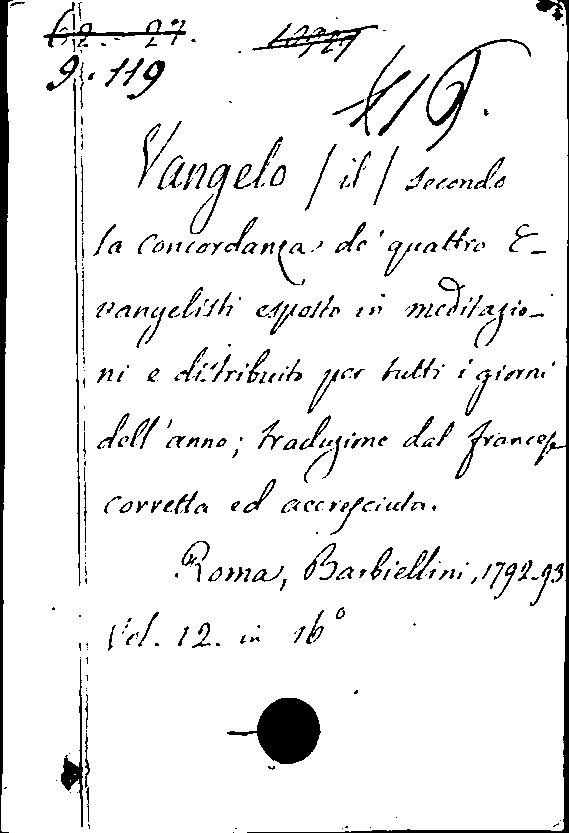 62. - 27.
9. 119
Vangelo / il / secondo
la concordanza de' quattro E-
vangelisti esposto in meditazio-
ni e distribuito per tutti i giorni
dell'anno; traduzione dal francese
corretta ed accresciuta.
Roma, Barbiellini, 1792-93
Vol. 12. in 16°